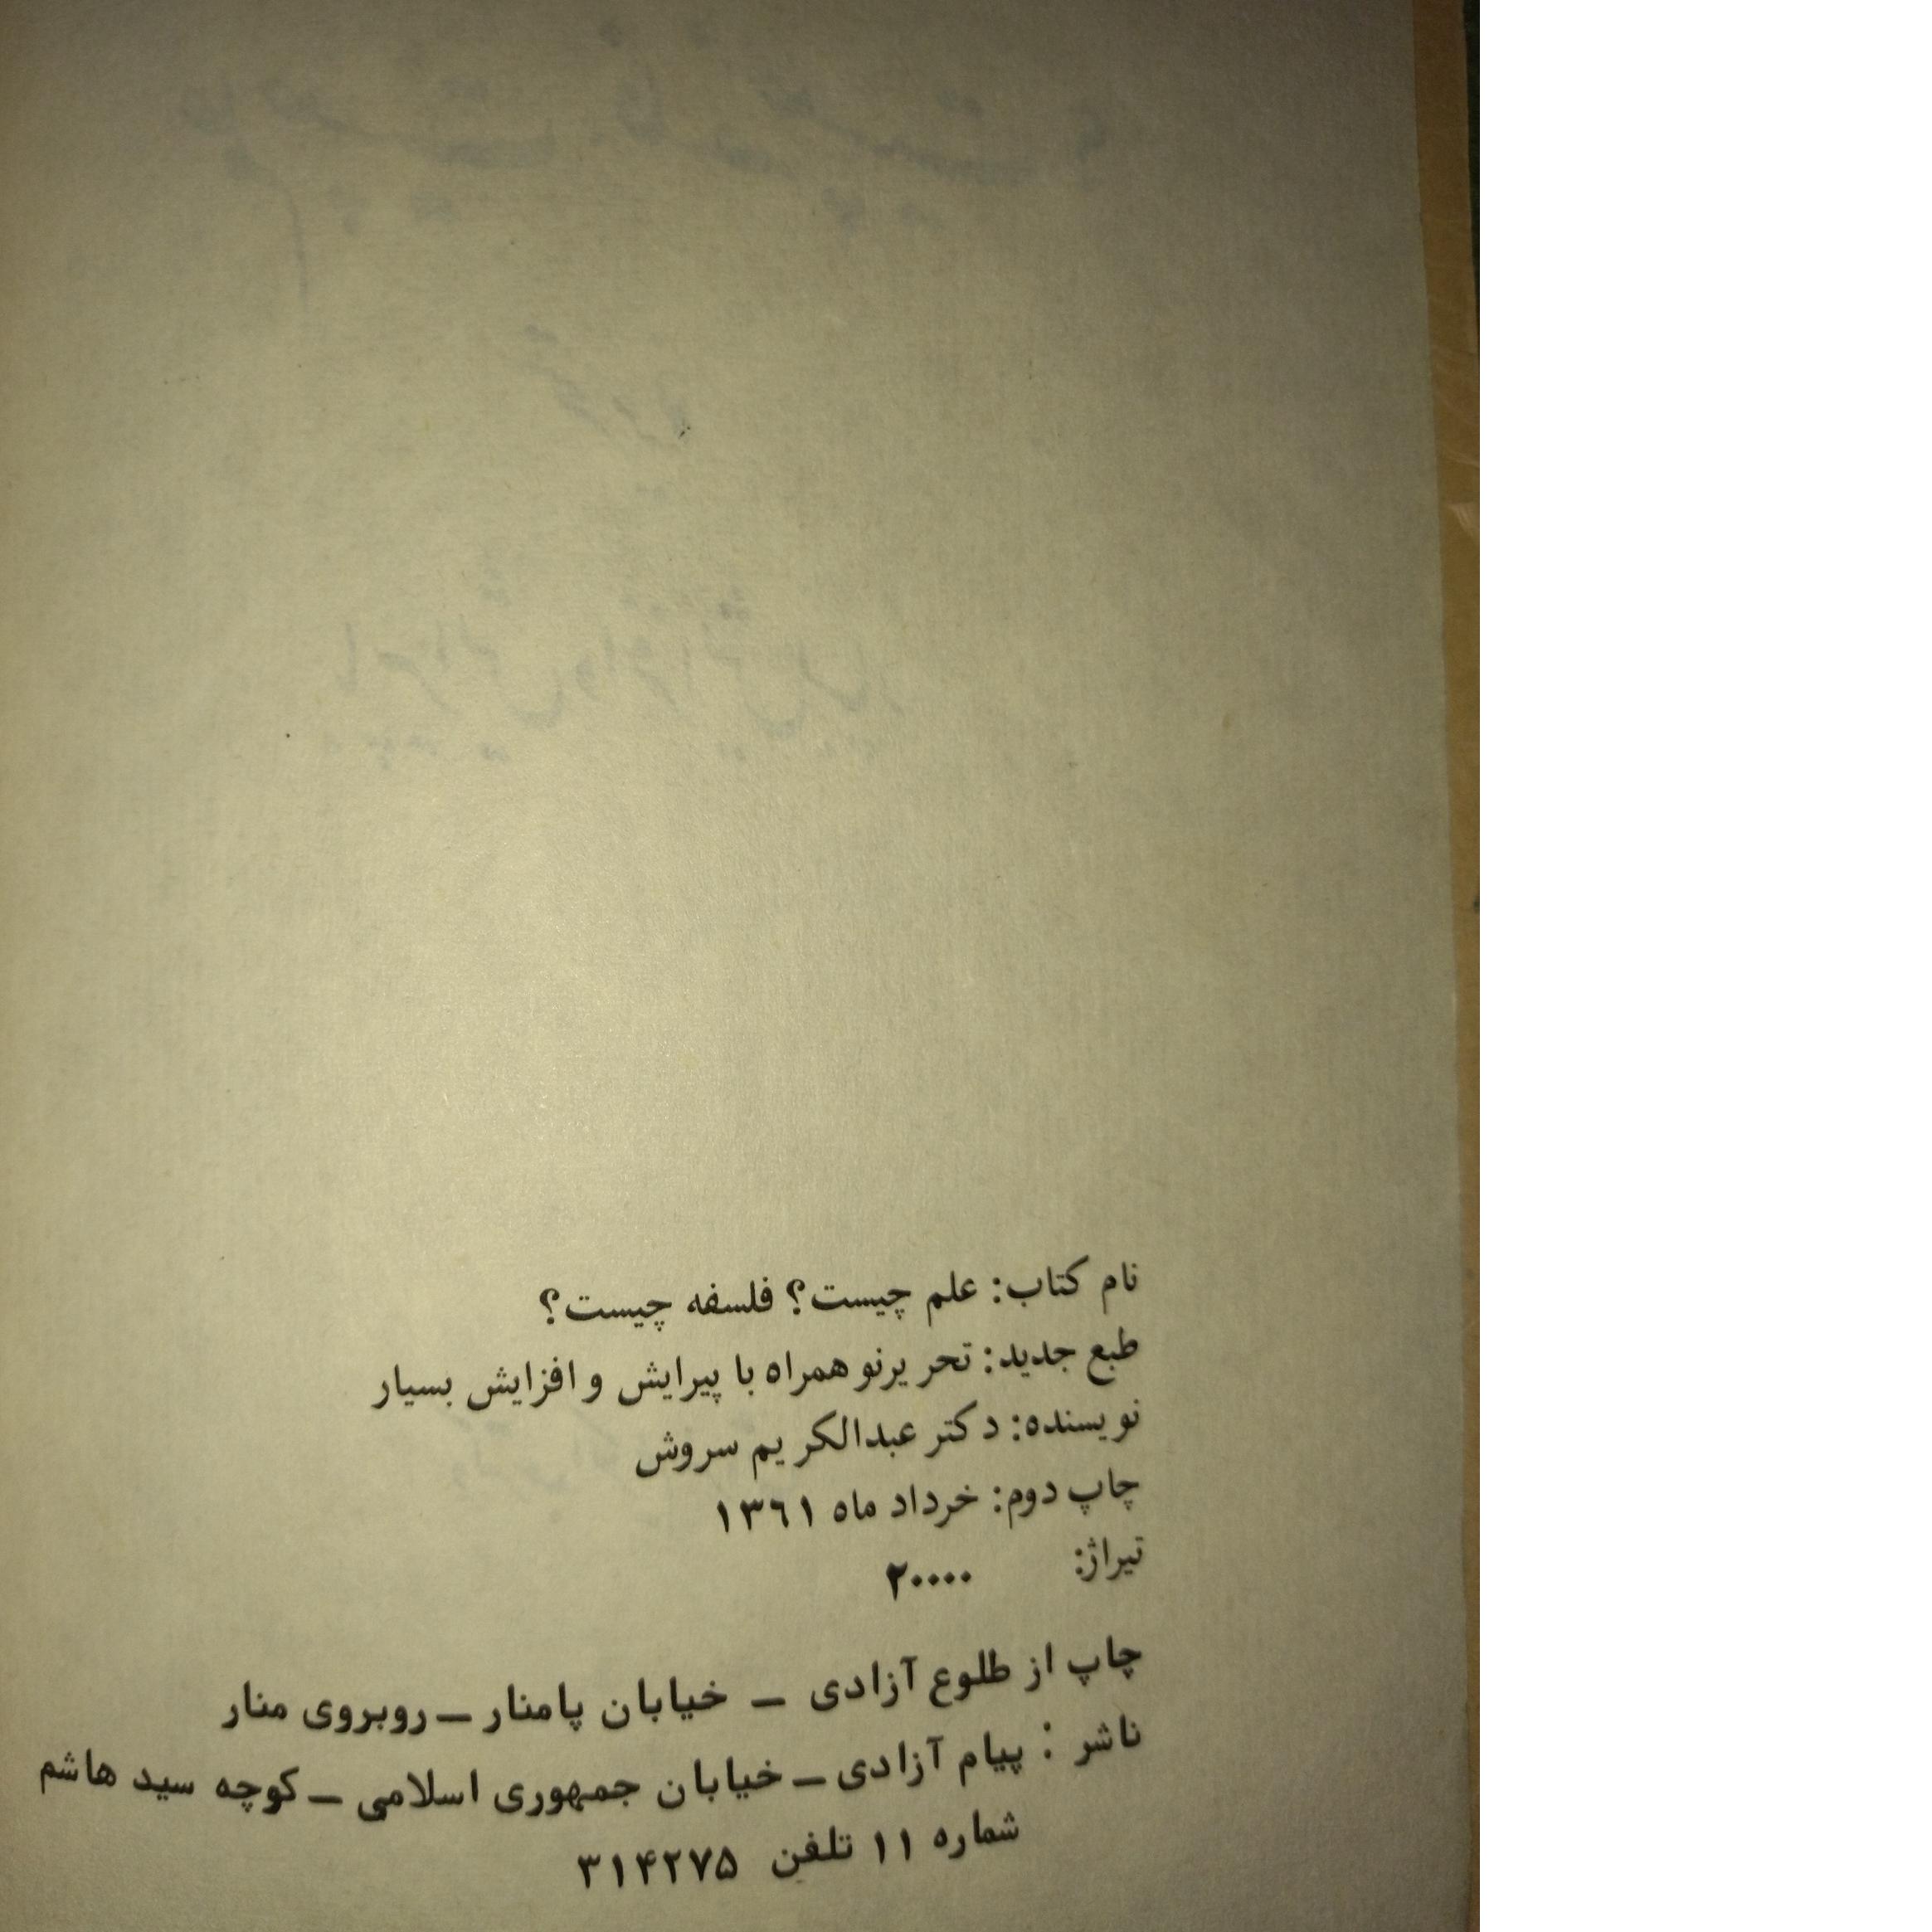 نام کتاب: علم چیست؟ فلسفه چیست؟
طبع جدید: تحریرنو همراه با پیرایش و افزایش بسیار
نویسنده: دکتر عبدالکریم سروش
چاپ دوم: خرداد ماه ۱۳٦۱
تیراژ: ۲۰۰۰۰
چاپ از طلوع آزادی – خیابان پامنار – روبروی منار
ناشر : پیام آزادی – خیابان جمهوری اسلامی – کوچه سید هاشم
شماره ۱۱ تلفن ۳۱۴۲۷۵